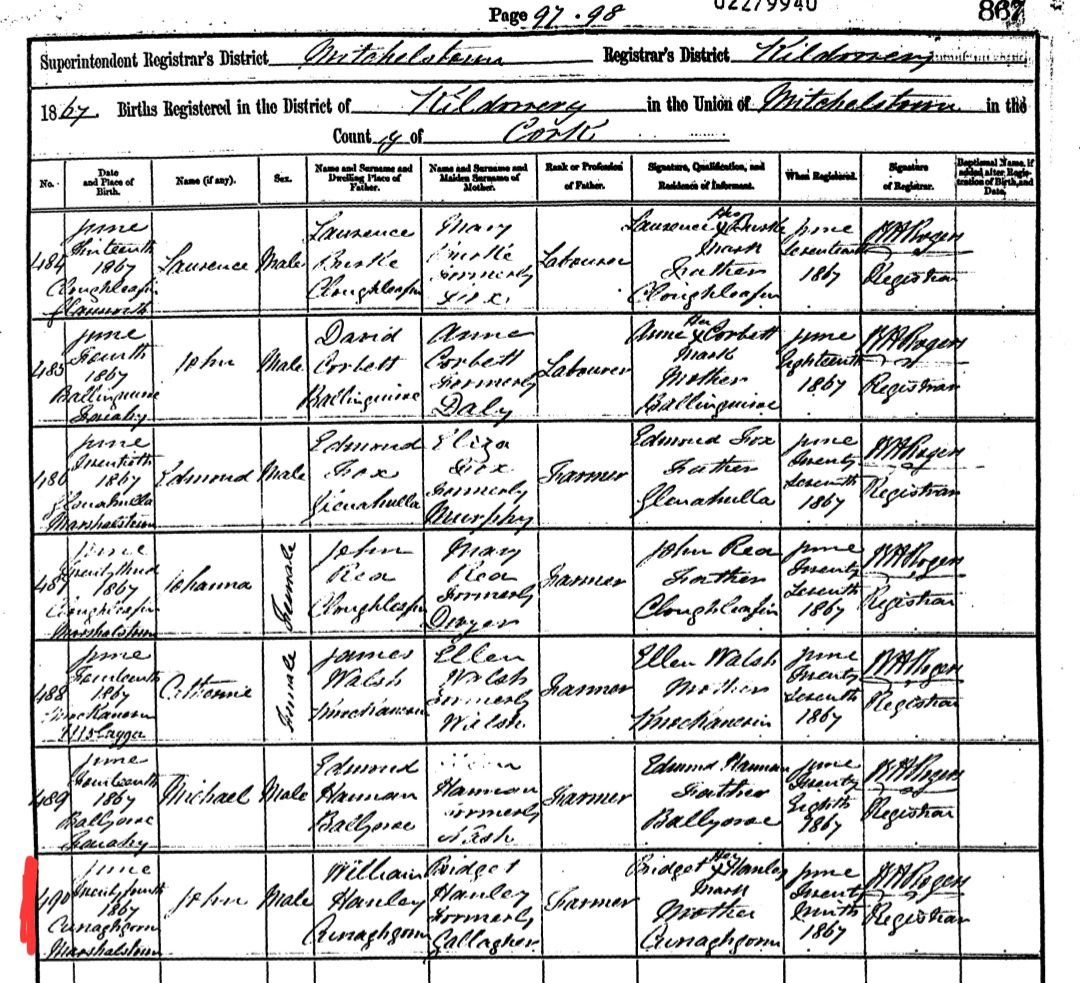 Page 97.98
02279940
867
Superintendent Registrar's District Mitchelstown Registrar's District Kildorrery
1867. Births Registered in the District of Kildorrery in the Union of Mitchelstown in the
County of Cork
No. Date and Place of Birth. Name (if any). Sex. Name and Surname and Dwelling Place of Father. Name and Surname and Maiden Surname of Mother. Rank or Profession of Father. Signature, Qualification, and Residence of Informant. When Registered. Signature of Registrar. Baptismal Name, if added after Registration of Birth, and Date.
484 June thirteenth 1867 Cloughleafin Glanworth Laurence Male Laurence Burke Cloughleafin Mary Burke formerly Fox Labourer Laurence his X mark Burke Father Cloughleafin June Seventeenth 1867 Registrar
485 June Fourth 1867 John Male David Corbett Anne Corbett formerly Daly Labourer Anne Her X mark Corbett Mother June Eighteenth 1867 Registrar
486 June 1867 Marshalstown Edmond Male Edmond Fox Glenahulla Eliza Fox formerly Murphy Farmer Edmond Fox Father Glenahulla June Twenty Seventh 1867 Registrar
487 June Twenty third 1867 Cloughleafin Marshalstown Johanna Female John Rea Cloughleafin Mary Rea formerly Dwyer Farmer John Rea Father Cloughleafin June Twenty Seventh 1867 Registrar
488 June Fourteenth 1867 Catherine Female James Walsh Ellen Walsh formerly Walsh Farmer Ellen Walsh Mother June Twenty Seventh 1867 Registrar
489 June Fourteenth 1867 Michael Male Edmond Hannan Hannan formerly Nash Farmer Edmond Hannan Father June Twenty Eighth 1867 Registrar
490 June Twenty fourth 1867 Marshalstown John Male William Hanley Bridget Hanley formerly Gallagher Farmer Bridget Her X mark Hanley Mother June Twenty Ninth 1867 Registrar